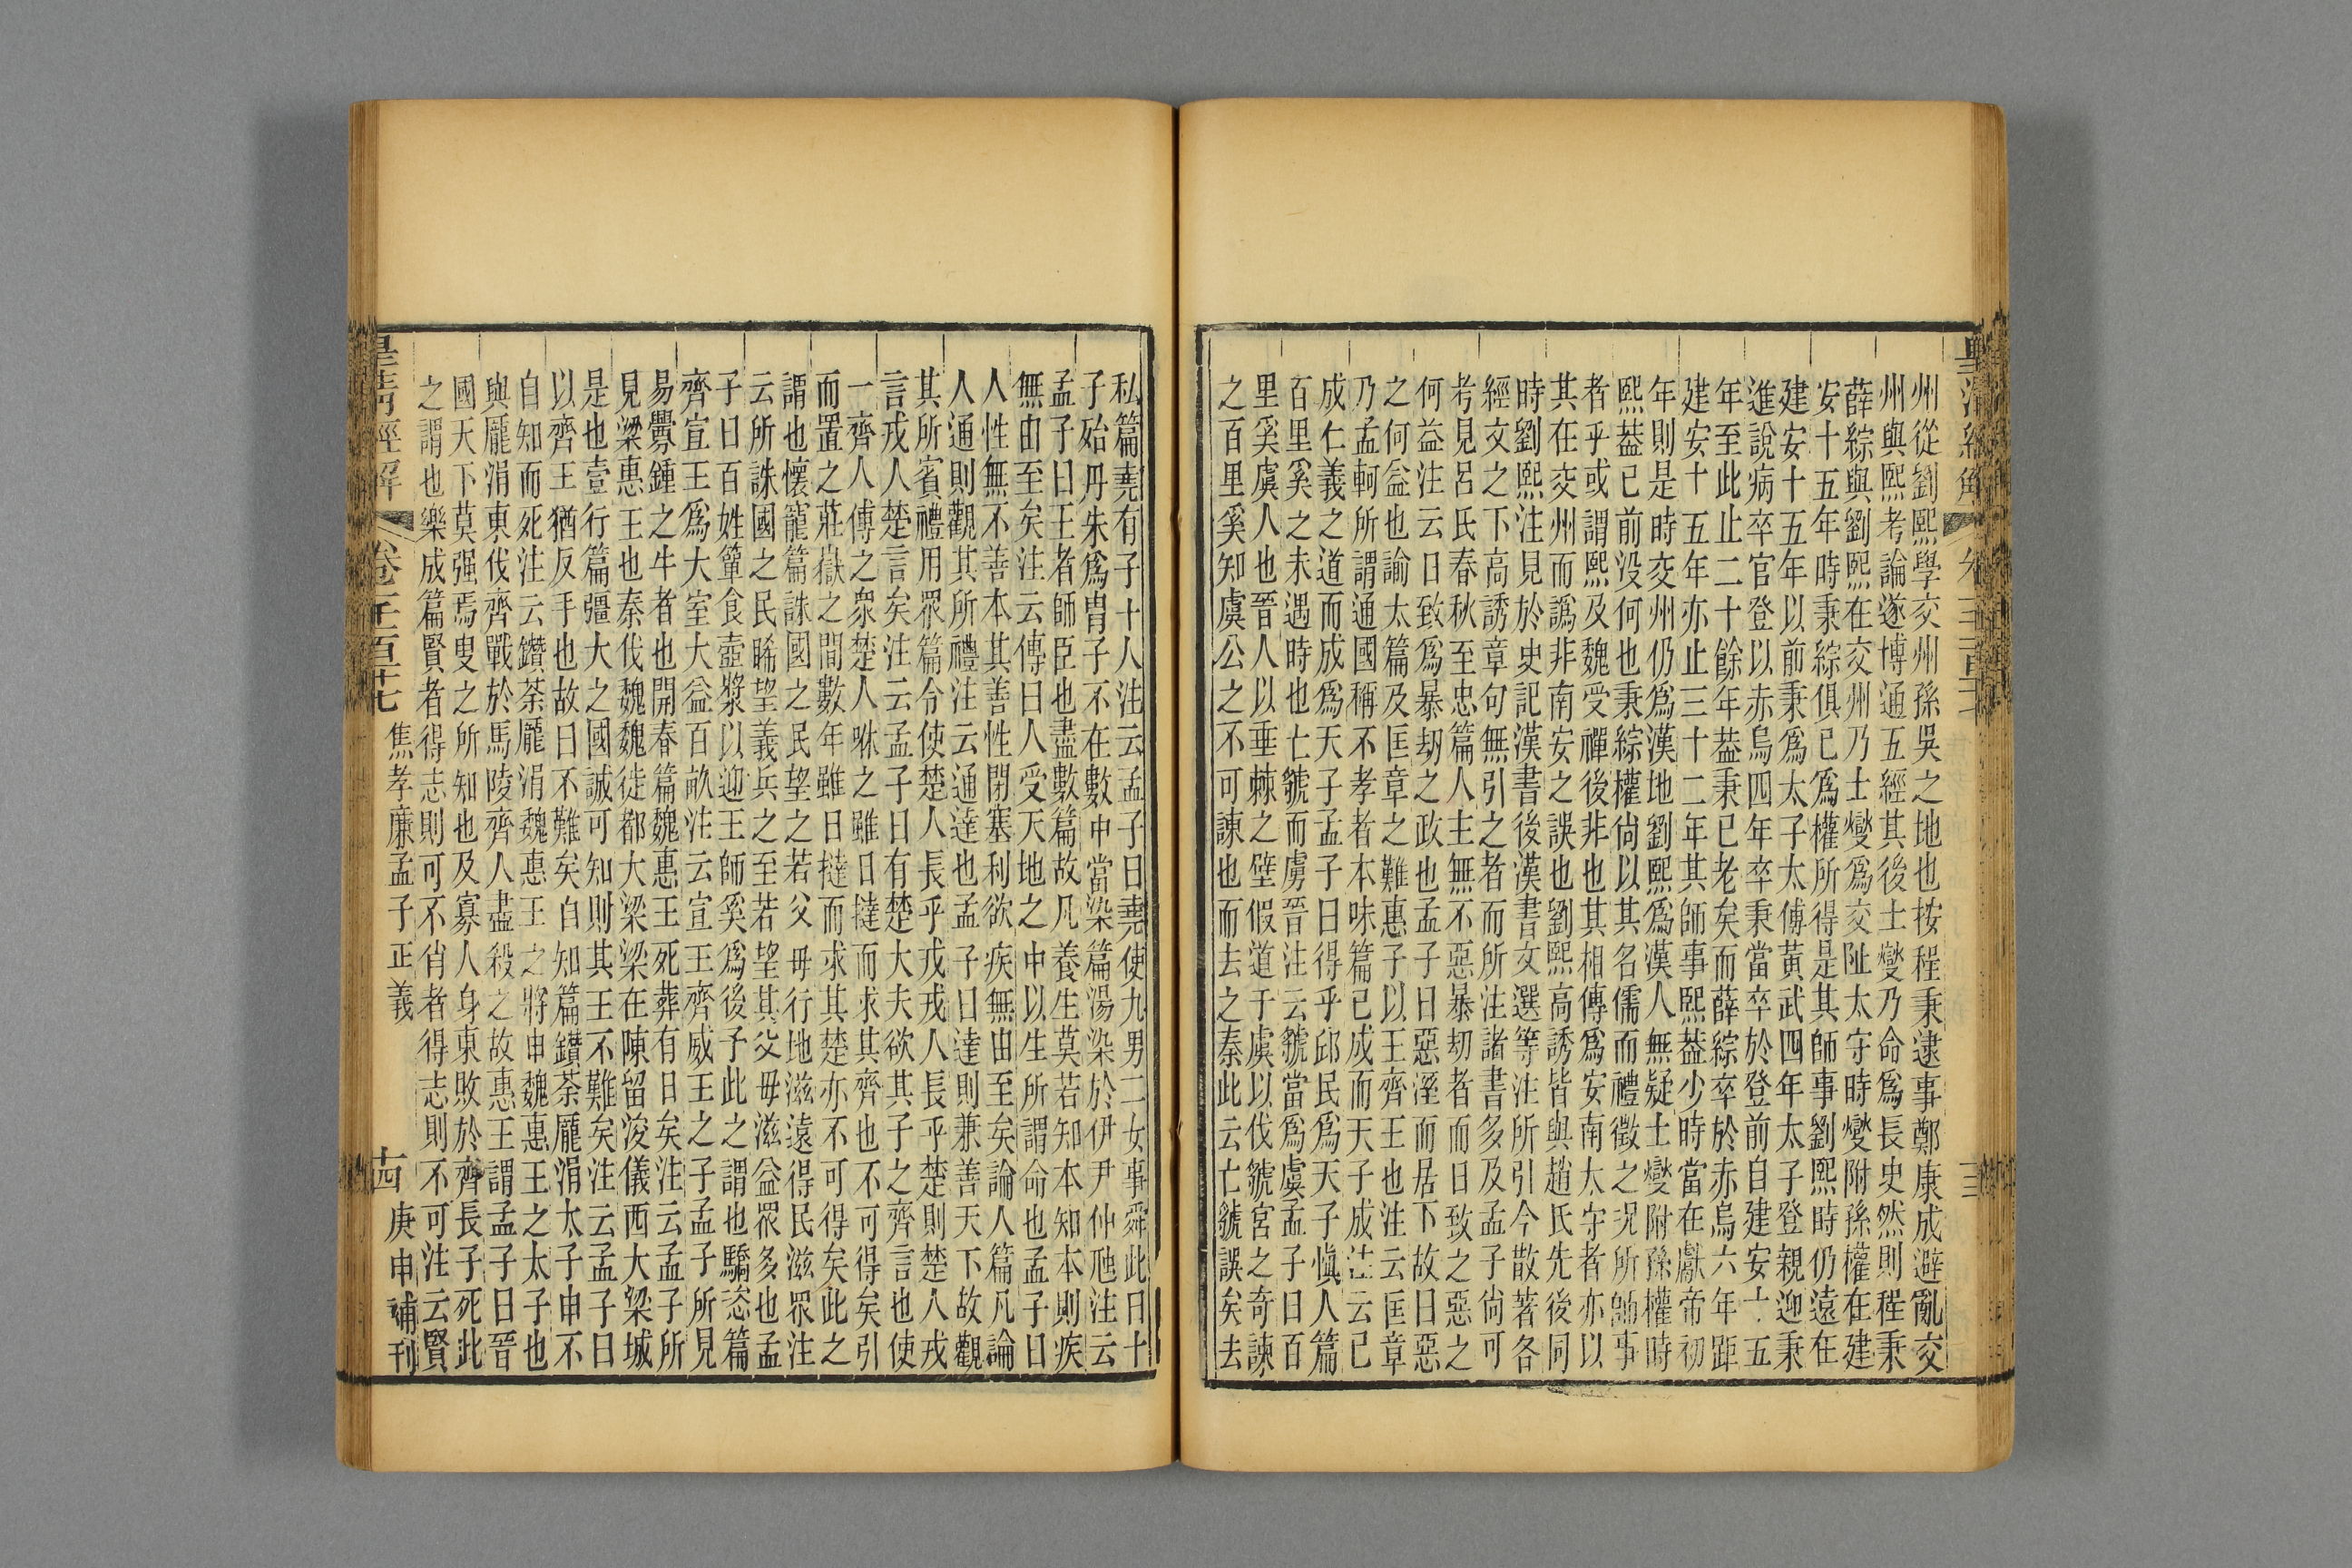 州從劉熙學交州孫吳之地也按程秉逮事鄭康成避亂交
州與熙考論遂博通五經其後士燮乃命爲長史然則程秉
薛綜與劉熙在交州乃士燮爲交阯太守時燮附孫權在建
安十五年時秉綜俱已爲權所得是其師事劉熙時仍遠在
建安十五年以前秉爲太子太傅黃武四年太子登親迎秉
進說病卒官登以赤烏四年卒秉當卒於登前自建安十五
年至此止二十餘年葢秉已老矣而薛綜卒於赤烏六年距
建安十五年亦止三十二年其師事熙葢少時當在獻帝初
年則是時交州仍爲漢地劉熙爲漢人無疑士燮附孫權時
熙葢已前没何也秉綜權尚以其名儒而禮徵之況所師事
者乎或謂熙及魏受禪後非也其相傳爲安南太守者亦以
其在交州而譌非南安之誤也劉熙高誘皆與趙氏先後同
時劉熙注見於史記漢書後漢書文選等注所引今散著各
經文之下高誘章句無引之者而所注諸書多及孟子尚可
考見呂氏春秋至忠篇人主無不惡暴刧者而日致之惡之
何益注云日致爲暴刧之政也孟子曰惡溼而居下故曰惡
之何益也諭太篇及匡章之難惠子以王齊王也注云匡章
乃孟軻所謂通國稱不孝者本味篇已成而天子成注云已
成仁義之道而成爲天子孟子曰得乎邱民爲天子愼人篇
百里奚之未遇時也亡虢而虜晉注云虢當爲虞孟子曰百
里奚虞人也晉人以垂棘之壁假道于虞以伐虢宮之奇諫
之百里奚知虞公之不可諫也而去之秦此云亡虢誤矣去
私篇堯有子十人注云孟子曰堯使九男二女事舜此曰十
子殆丹朱爲胄子不在數中當染篇湯染於伊尹仲虺注云
孟子曰王者師臣也盡數篇故凡養生莫若知本知本則疾
無由至矣注云傳曰人受天地之中以生所謂命也孟子曰
人性無不善本其善性閉塞利欲疾無由至矣論人篇凡論
人通則觀其所禮注云通達也孟子曰達則兼善天下故觀
其所賓禮用眾篇令使楚人長乎戎戎人長乎楚則楚人戎
言戎人楚言矣注云孟子曰有楚大夫欲其子之齊言也使
一齊人傅之衆楚人咻之雖日撻而求其齊也不可得矣引
而置之莊嶽之間數年雖日撻而求其楚亦不可得矣此之
謂也懷寵篇誅國之民望之若父母行地滋遠得民滋眾注
云所誅國之民睎望義兵之至若望其父毋滋益眾多也孟
子曰百姓簞食壺漿以迎王師奚爲後予此之謂也驕恣篇
齊宣王爲大室大益百畝注云宣王齊威王之子孟子所見
易釁鍾之牛者也開春篇魏惠王死葬有日矣注云孟子所
見梁惠王也秦伐魏魏徙都大梁梁在陳留浚儀西大梁城
是也壹行篇彊大之國誠可知則其王不難矣注云孟子曰
以齊王猶反手也故曰不難矣自知篇鑽荼龐涓太子申不
自知而死注云鑽荼龐涓魏惠王之將申魏惠王之太子也
與龐涓東伐齊戰於馬陵齊人盡殺之故惠王謂孟子曰晉
國天下莫强焉叟之所知也及寡人身東敗於齊長子死此
之謂也樂成篇賢者得志則可不肖者得志則不可注云賢
皇清經解 卷一千一百十七 焦孝廉孟子正義 十四 庚申補刊